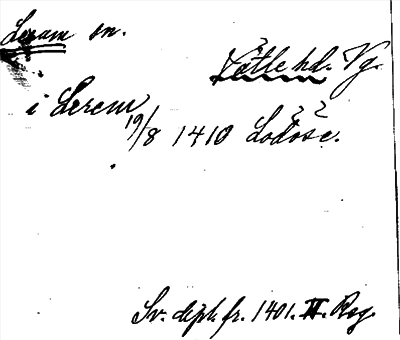 Leram sn.
Vättle hd. Vg.
i Lerem
19/8 1410 Lodose.
Sv. dipl. fr. 1401. II. Reg.